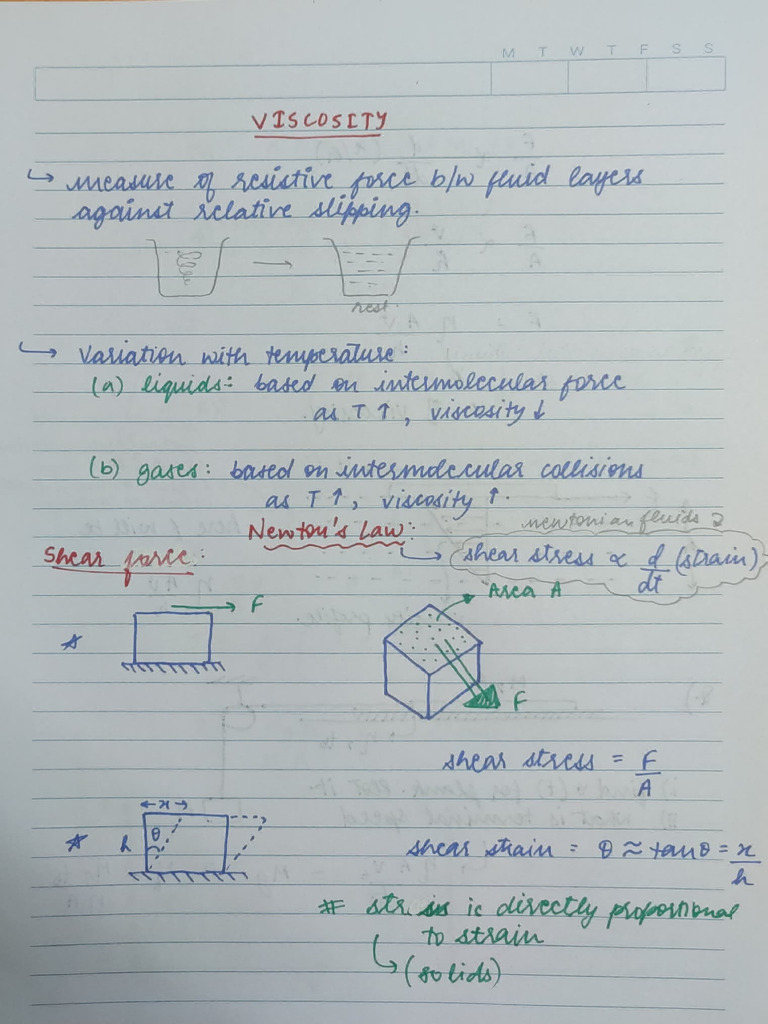 M T W T F S S
VISCOSITY
↳ measure of resistive force b/w fluid layers
against relative slipping.
rest.
↳ Variation with temperature:
(a) liquids: based on intermolecular force
as T ↑, viscosity ↓
(b) gases: based on intermolecular collisions
as T ↑, viscosity ↑.
newtonian fluids
Newton's Law:
Shear force:
↳ shear stress ∝ d/dt (strain)
F
Area A
F
shear stress = F/A
x
h θ
shear strain = θ ≈ tanθ = x/h
# is directly proportional
to strain
↳ (solids)